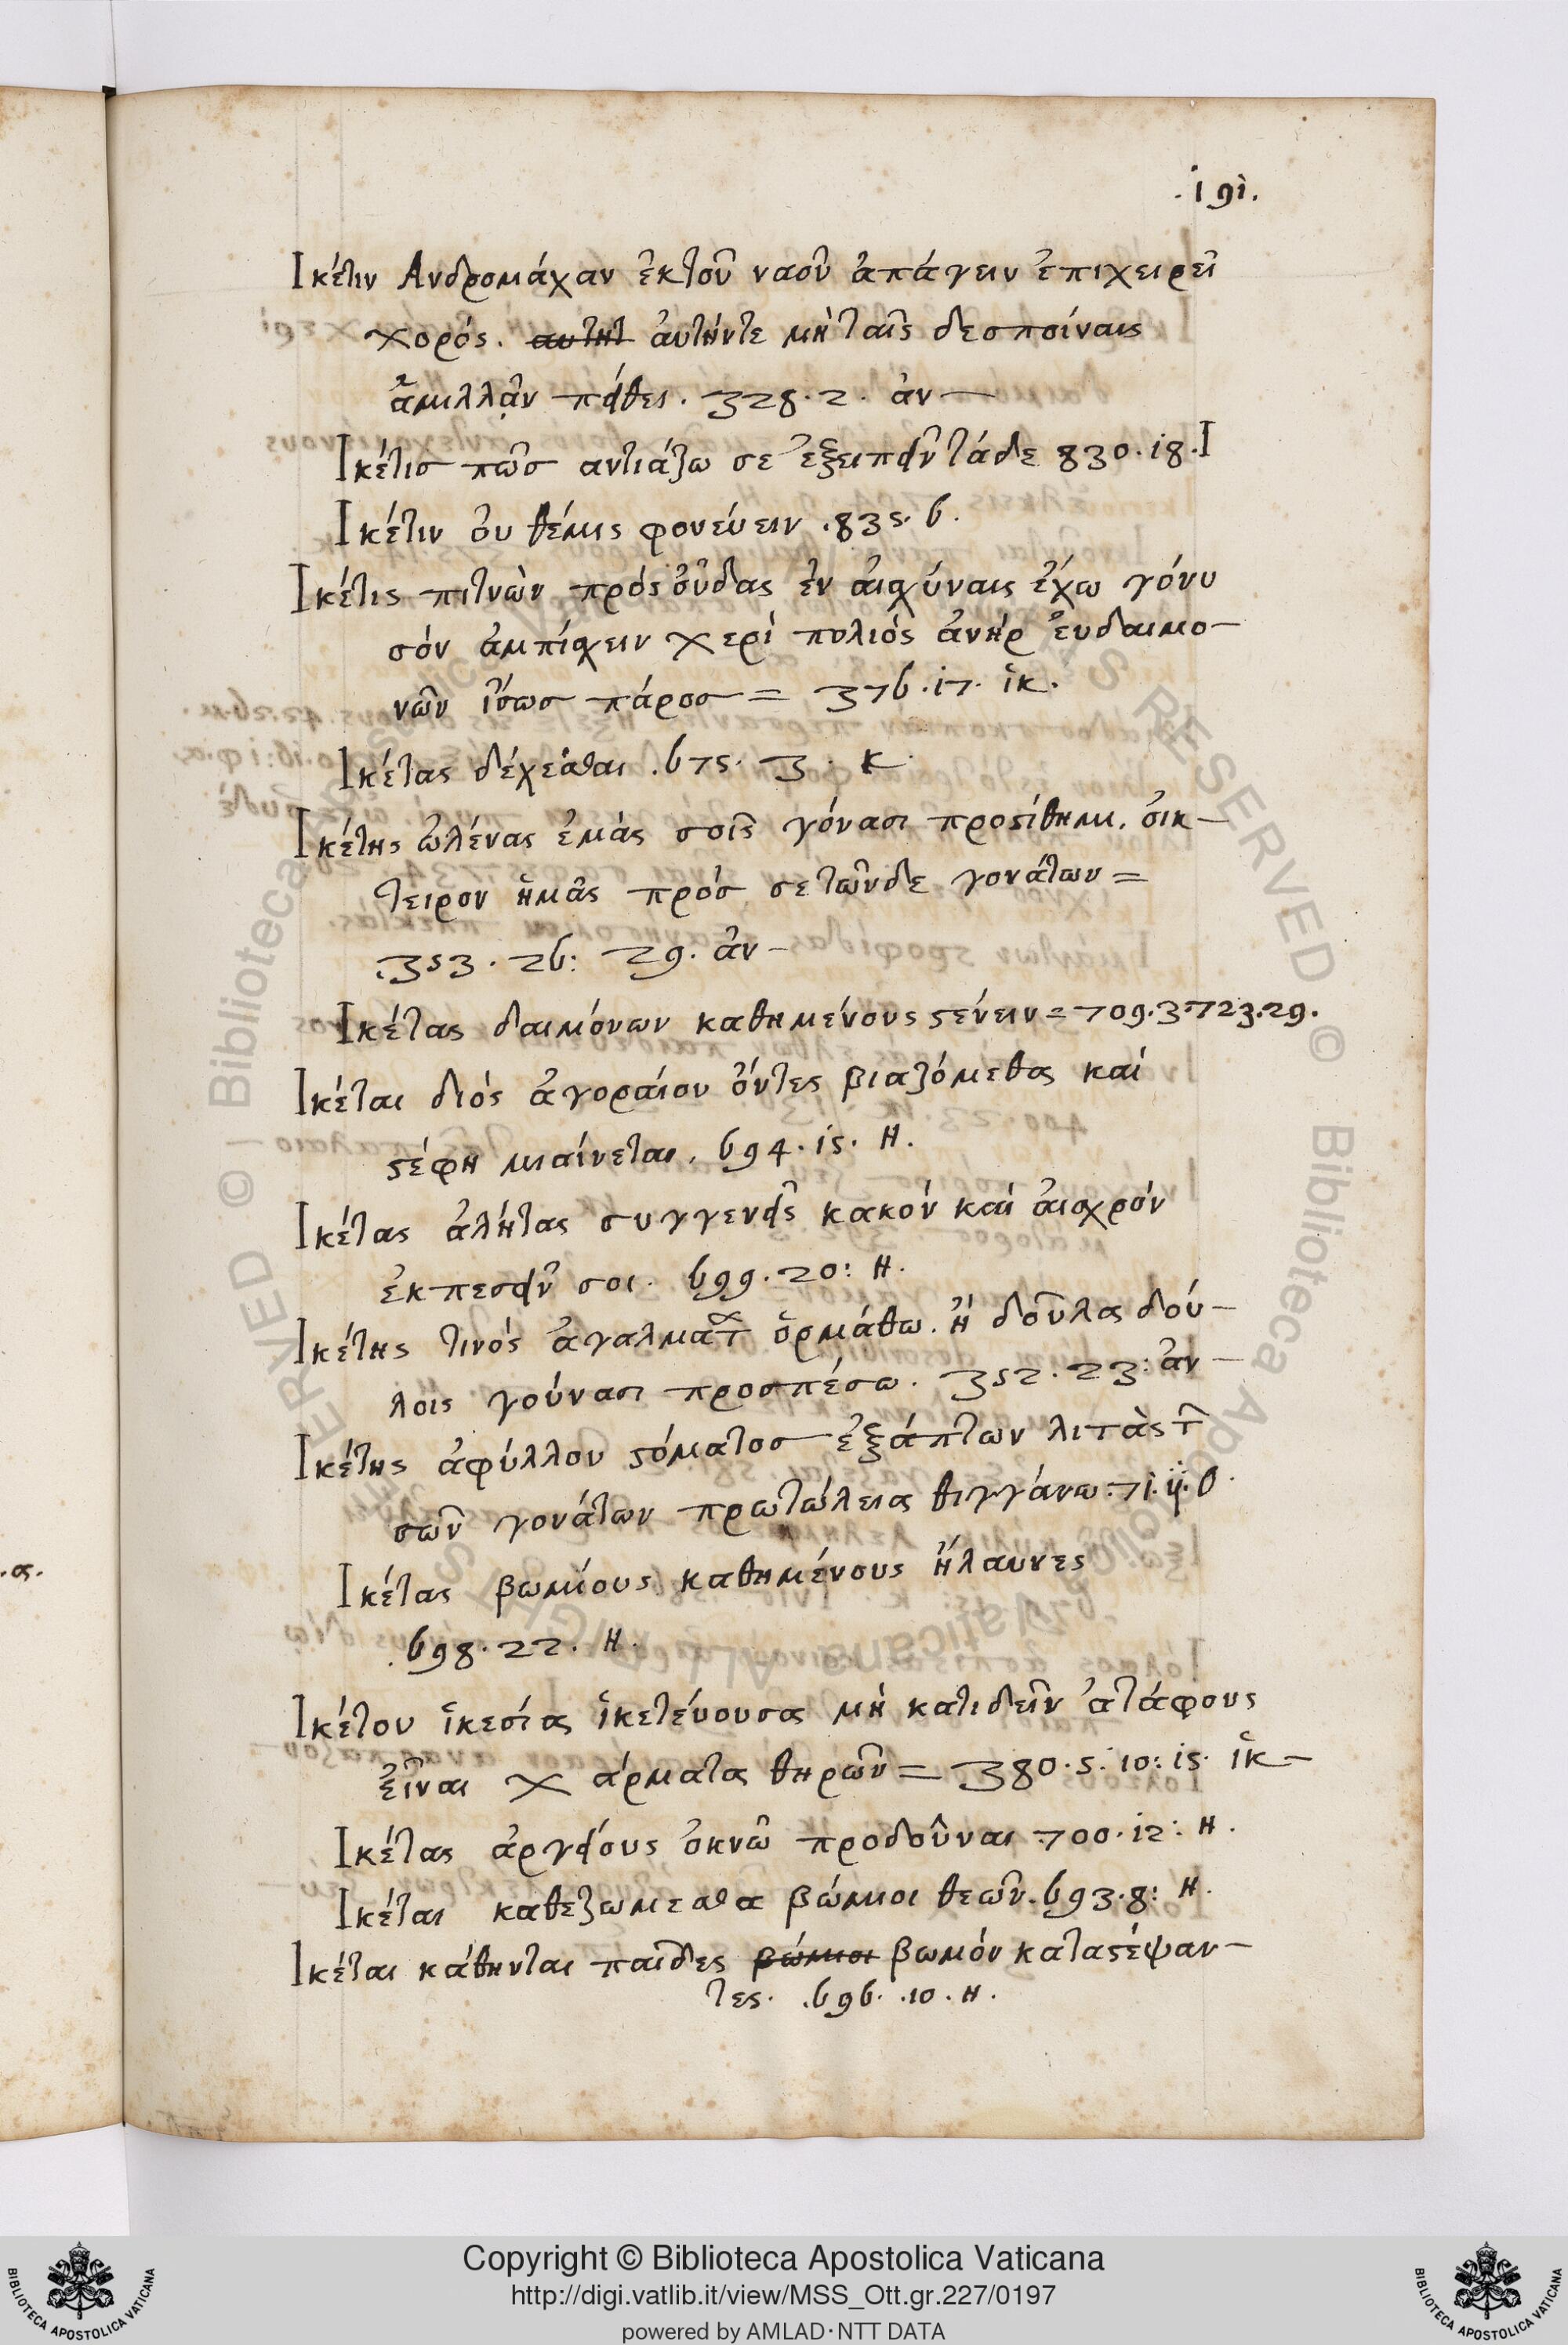 .191.
Ἱκέτιν Ανδρομάχαν ἐκτοῦ ναοῦ ἀπάγειν ἐπιχειρεῖ
χορός. αυτητ ἀυτήντε μὴ ταῖς δεσποίναις
ἁμιλλᾶν πάθει. 328. 2. ἀν—
Ικέτισ πῶσ αντιάζω σε ἐξειπεῖν τάδε 830. 18.
Ικέτιν ὀυ θέμις φονέυειν .835. 6.
Ικέτις πιτνὼν πρός οὖδας ἐν ἀισχύναις ἔχω γόνυ
σόν ἀμπίσχειν χερὶ πολιός ἀνήρ ἐυδαιμο—
νῶν ἴσωσ πάροσ = 376. 17. ἱκ.
Ικέτας δέχεσθαι .675. 3. κ.
Ικέτης ὠλένας ἐμὰς σοῖς γόνασι προςίθημι. ὀικ—
τειρον ἡμᾶς πρόσ σετῶνδε γονάτων =
.353. 26: 29. ἀν—
Ικέτας δαιμόνων καθημένους ϛένειν = 709. 3. 723. 29.
Ικέται διός ἀγοράιου ὄντες βιαζόμεθα καί
ϛέφη μιαίνεται. 694. 15. Η.
Ικέτας ἀλήτας συγγενεῖς κακόν καί ἀισχρόν
ἐκπεσεῖν σοι. 699. 20: Η.
Ικέτης τινός ἀγαλματ ὁρμάθω. ἢ δοῦλα δού—
λοις γούνασι προσπέσω. 352. 23: ἀν—
Ικέτης ἀφύλλου ϛόματοσ ἐξάπτων λιτὰς τ
σῶν γονάτων πρωτώλεια θιγγάνω. 71. 11. Ο.
Ικέτας βωμίους καθημένους ἤλαυνες
.698. 22. Η.
Ικέτου ἱκεσίας ἱκετέυουσα μή κατιδεῖν ἀτάφους
εἶναι χάρματα θηρῶν = 380. 5. 10: 15. ἱκ—
Ικέτας ἀργείους ὀκνῶ προδοῦναι .700. 12: Η.
Ικέται καθεζωμεσθα βώμιοι θεῶν. 693. 8: Η.
Ικέται κάθηνται παῖδες βώμιοι βωμόν καταϛέψαν—
τες. .696. .10. Η.
.α.
Copyright © Biblioteca Apostolica Vaticana
http://digi.vatlib.it/view/MSS_Ott.gr.227/0197
powered by AMLAD·NTT DATA
BIBLIOTECA APOSTOLICA VATICANA
BIBLIOTECA APOSTOLICA VATICANA